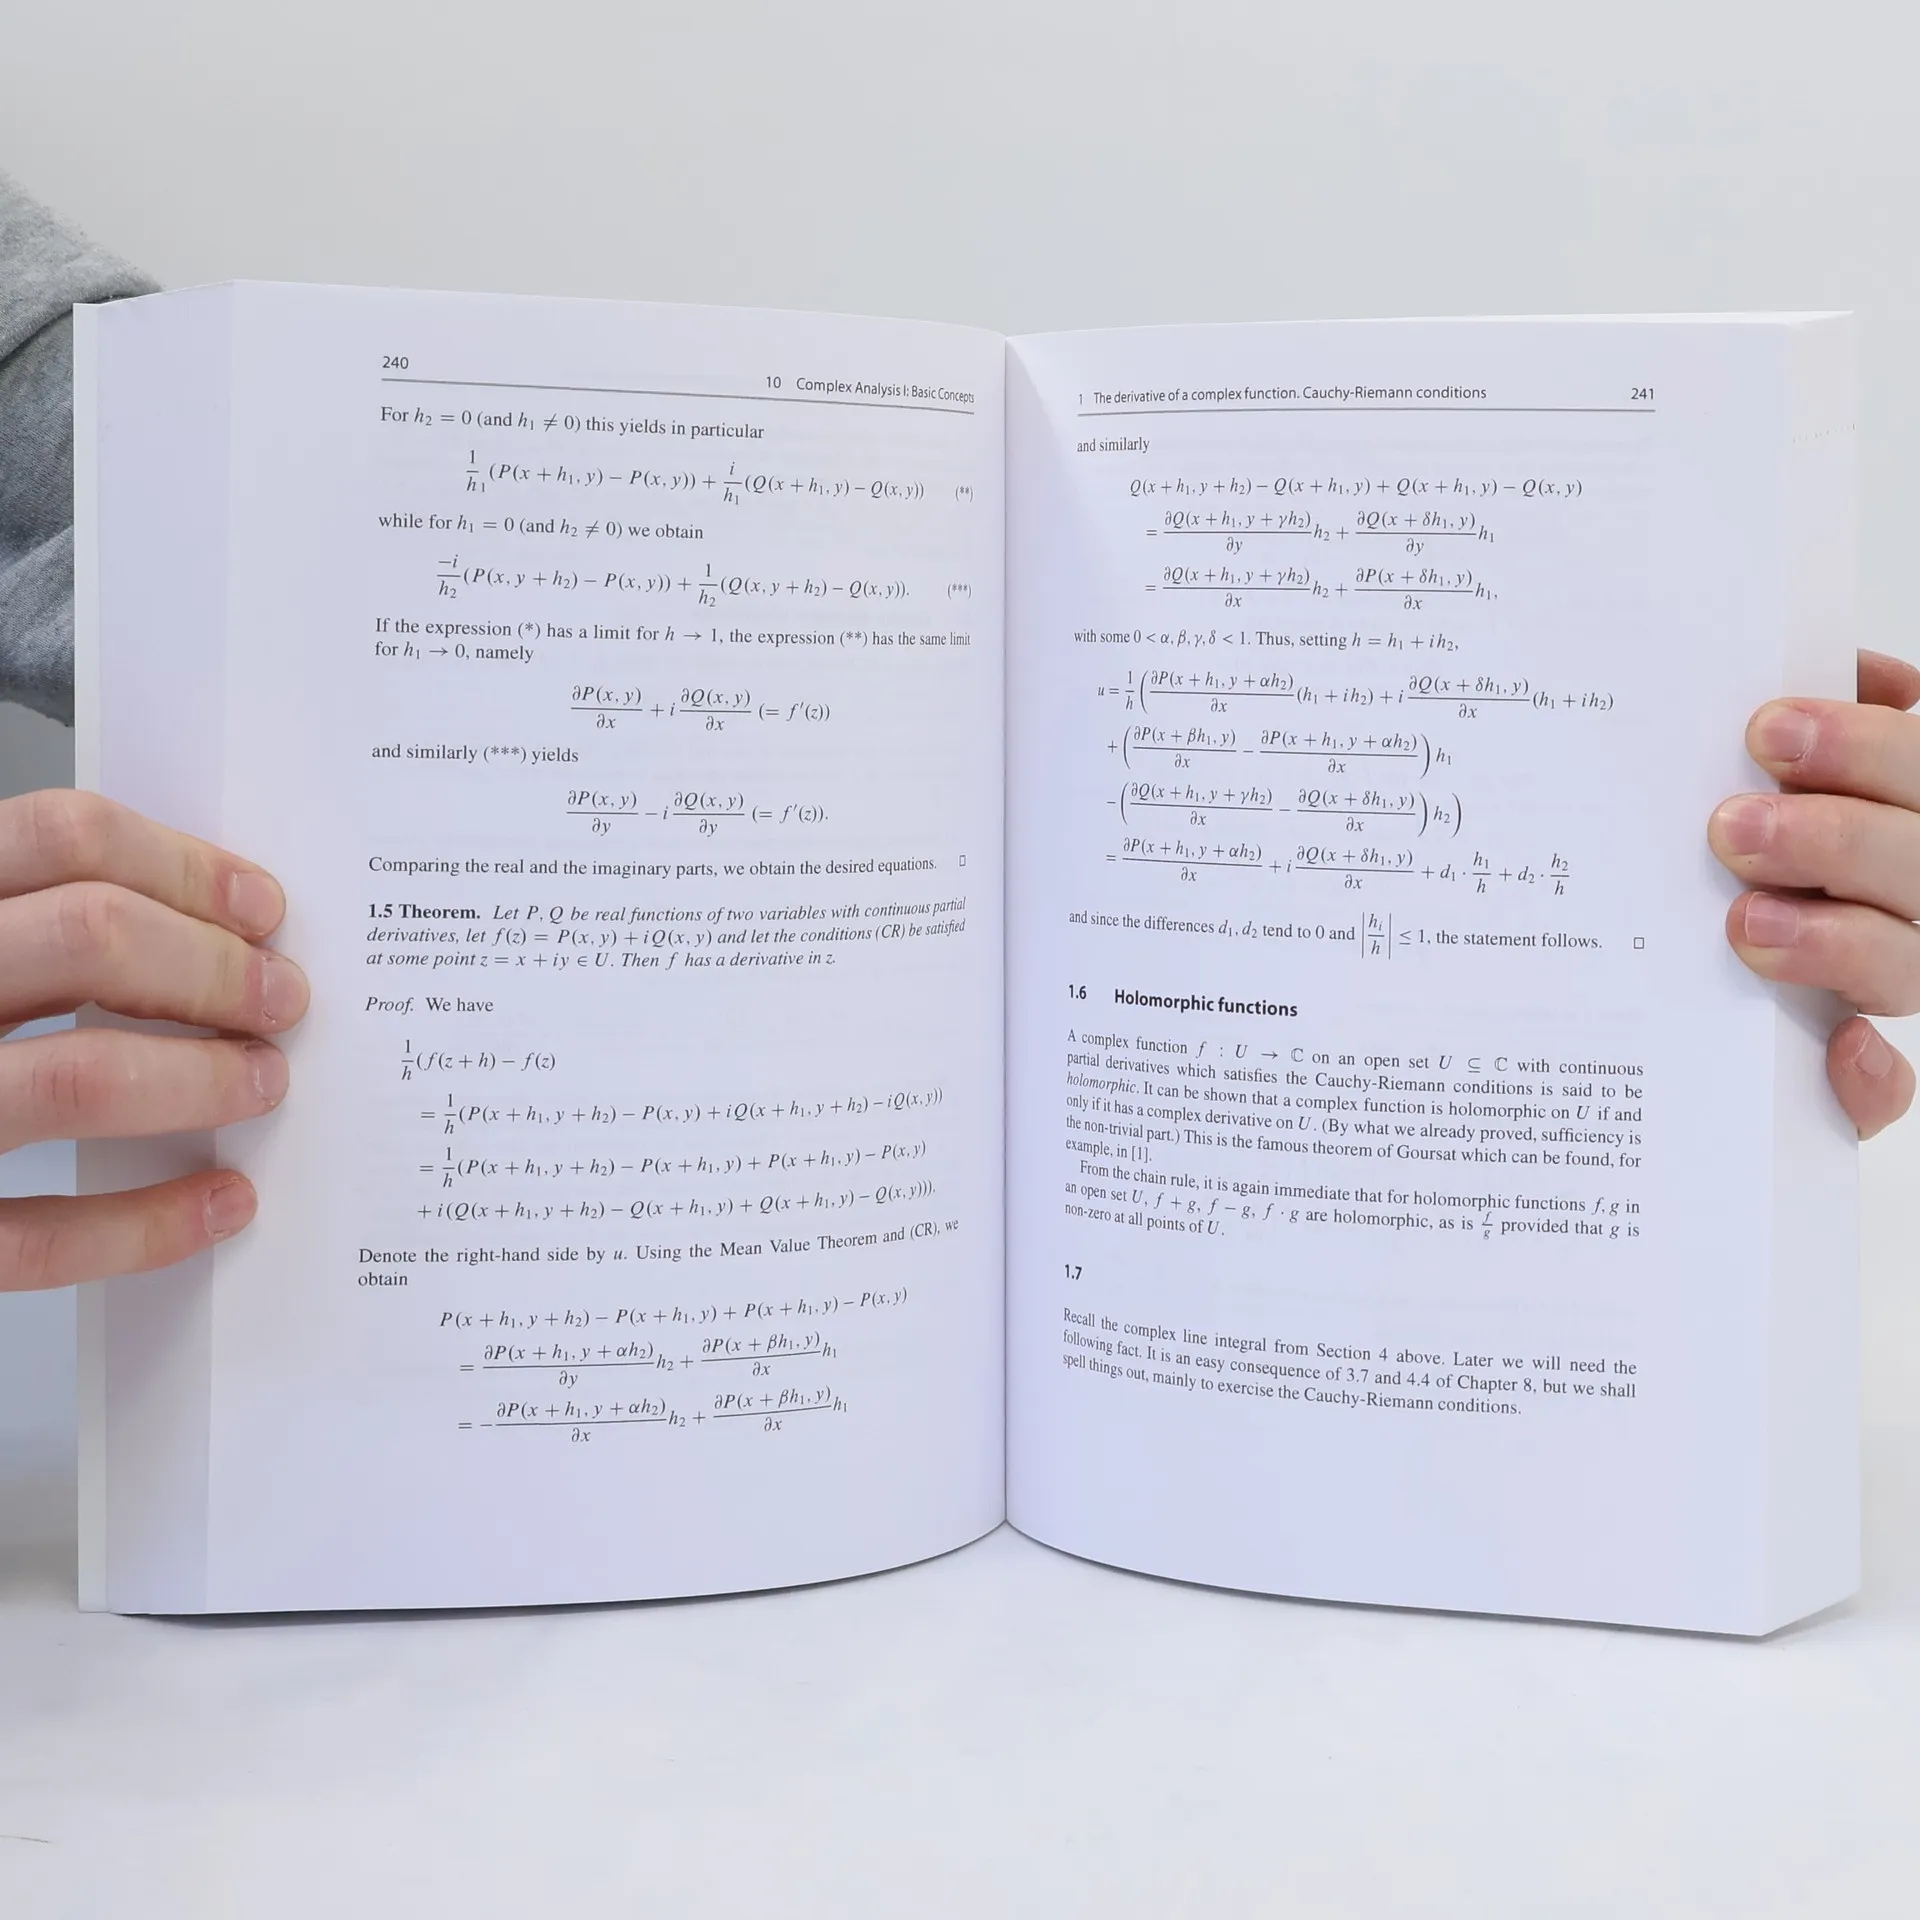 240
10 Complex Analysis I: Basic Concepts
For h₂ = 0 (and h₁ ≠ 0) this yields in particular
1/h₁ (P(x + h₁, y) − P(x, y)) + i/h₁ (Q(x + h₁, y) − Q(x, y)) (**)
while for h₁ = 0 (and h₂ ≠ 0) we obtain
−i/h₂ (P(x, y + h₂) − P(x, y)) + 1/h₂ (Q(x, y + h₂) − Q(x, y)). (***)
If the expression (*) has a limit for h → 1, the expression (**) has the same limit
for h₁ → 0, namely
∂P(x, y)/∂x + i ∂Q(x, y)/∂x (= f′(z))
and similarly (***) yields
∂P(x, y)/∂y − i ∂Q(x, y)/∂y (= f′(z)).
Comparing the real and the imaginary parts, we obtain the desired equations. □
1.5 Theorem. Let P, Q be real functions of two variables with continuous partial
derivatives, let f(z) = P(x, y) + iQ(x, y) and let the conditions (CR) be satisfied
at some point z = x + iy ∈ U. Then f has a derivative in z.
Proof. We have
1/h (f(z + h) − f(z)
= 1/h (P(x + h₁, y + h₂) − P(x, y) + iQ(x + h₁, y + h₂) − iQ(x, y))
= 1/h (P(x + h₁, y + h₂) − P(x + h₁, y) + P(x + h₁, y) − P(x, y)
+ i(Q(x + h₁, y + h₂) − Q(x + h₁, y) + Q(x + h₁, y) − Q(x, y))).
Denote the right-hand side by u. Using the Mean Value Theorem and (CR), we
obtain
P(x + h₁, y + h₂) − P(x + h₁, y) + P(x + h₁, y) − P(x, y)
= ∂P(x + h₁, y + αh₂)/∂y h₂ + ∂P(x + βh₁, y)/∂x h₁
= − ∂P(x + h₁, y + αh₂)/∂x h₂ + ∂P(x + βh₁, y)/∂x h₁
1 The derivative of a complex function. Cauchy-Riemann conditions
241
and similarly
Q(x + h₁, y + h₂) − Q(x + h₁, y) + Q(x + h₁, y) − Q(x, y)
= ∂Q(x + h₁, y + γh₂)/∂y h₂ + ∂Q(x + δh₁, y)/∂y h₁
= ∂Q(x + h₁, y + γh₂)/∂x h₂ + ∂P(x + δh₁, y)/∂x h₁,
with some 0 < α, β, γ, δ < 1. Thus, setting h = h₁ + ih₂,
u = 1/h (∂P(x + h₁, y + αh₂)/∂x (h₁ + ih₂) + i ∂Q(x + δh₁, y)/∂x (h₁ + ih₂)
+ (∂P(x + βh₁, y)/∂x − ∂P(x + h₁, y + αh₂)/∂x) h₁
− (∂Q(x + h₁, y + γh₂)/∂x − ∂Q(x + δh₁, y)/∂x) h₂)
= ∂P(x + h₁, y + αh₂)/∂x + i ∂Q(x + δh₁, y)/∂x + d₁ · h₁/h + d₂ · h₂/h
and since the differences d₁, d₂ tend to 0 and |hᵢ/h| ≤ 1, the statement follows. □
1.6 Holomorphic functions
A complex function f : U → ℂ on an open set U ⊆ ℂ with continuous
partial derivatives which satisfies the Cauchy-Riemann conditions is said to be
holomorphic. It can be shown that a complex function is holomorphic on U if and
only if it has a complex derivative on U. (By what we already proved, sufficiency is
the non-trivial part.) This is the famous theorem of Goursat which can be found, for
example, in [1].
From the chain rule, it is again immediate that for holomorphic functions f, g in
an open set U, f + g, f − g, f · g are holomorphic, as is f/g provided that g is
non-zero at all points of U.
1.7
Recall the complex line integral from Section 4 above. Later we will need the
following fact. It is an easy consequence of 3.7 and 4.4 of Chapter 8, but we shall
spell things out, mainly to exercise the Cauchy-Riemann conditions.